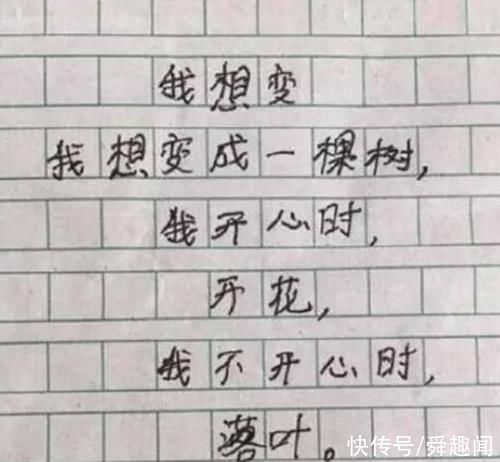 我想变
我想变成一棵树，
我开心时，
开花，
我不开心时，
落叶。
快传号/舜趣闻